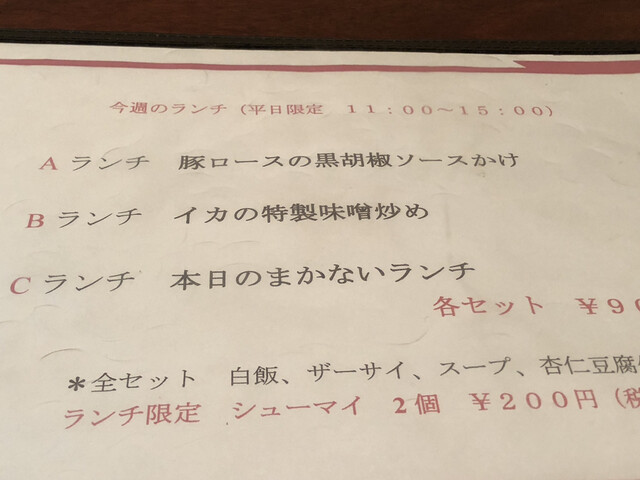 今週のランチ (平日限定 11:00〜15:00)
A ランチ 豚ロースの黒胡椒ソースかけ
B ランチ イカの特製味噌炒め
C ランチ 本日のまかないランチ
各セット ¥9
*全セット 白飯、ザーサイ、スープ、杏仁豆腐
ランチ限定 シューマイ 2個 ¥200円 (税